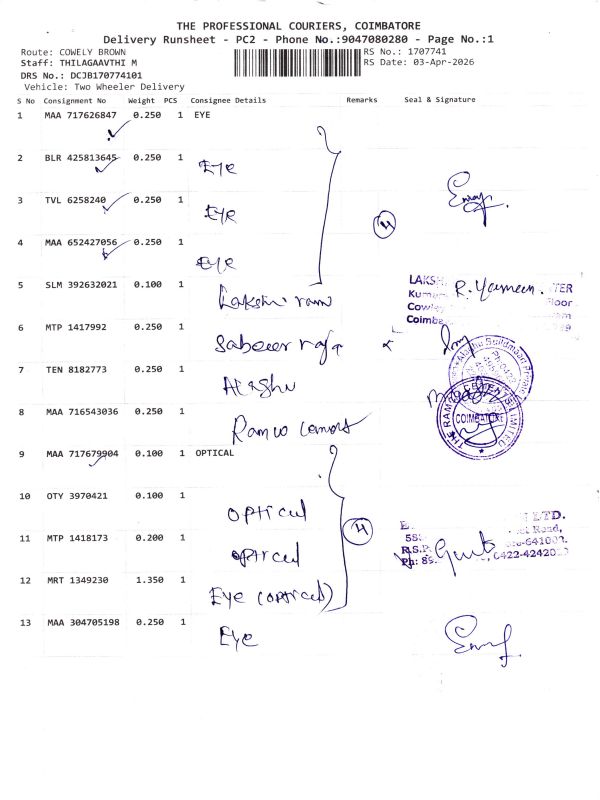 THE PROFESSIONAL COURIERS, COIMBATORE
Delivery Runsheet - PC2 - Phone No.:9047080280 - Page No.:1
Route: COWELY BROWN
RS No.: 1707741
Staff: THILAGAAVTHI M
RS Date: 03-Apr-2026
DRS No.: DCJB170774101
Vehicle: Two Wheeler Delivery
S No Consignment No Weight PCS Consignee Details Remarks Seal & Signature
1 MAA 717626847 0.250 1 EYE
2 BLR 425813645 0.250 1 Eye
3 TVL 6258240 0.250 1 Eye
4 MAA 652427056 0.250 1 Eye
4
5 SLM 392632021 0.100 1 Lakshmi ram
LAKSH
R. Yameen
TER
Floor
6 MTP 1417992 0.250 1 Sabeer raja
7 TEN 8182773 0.250 1
8 MAA 716543036 0.250 1 Ramco
COIMBATORE
LIMITED
9 MAA 717679904 0.100 1 OPTICAL
10 OTY 3970421 0.100 1 OPTICAL
11 MTP 1418173 0.200 1 OPTICAL
4
LTD.
Road,
0422-4242
12 MRT 1349230 1.350 1 Eye (optical)
13 MAA 304705198 0.250 1 Eye